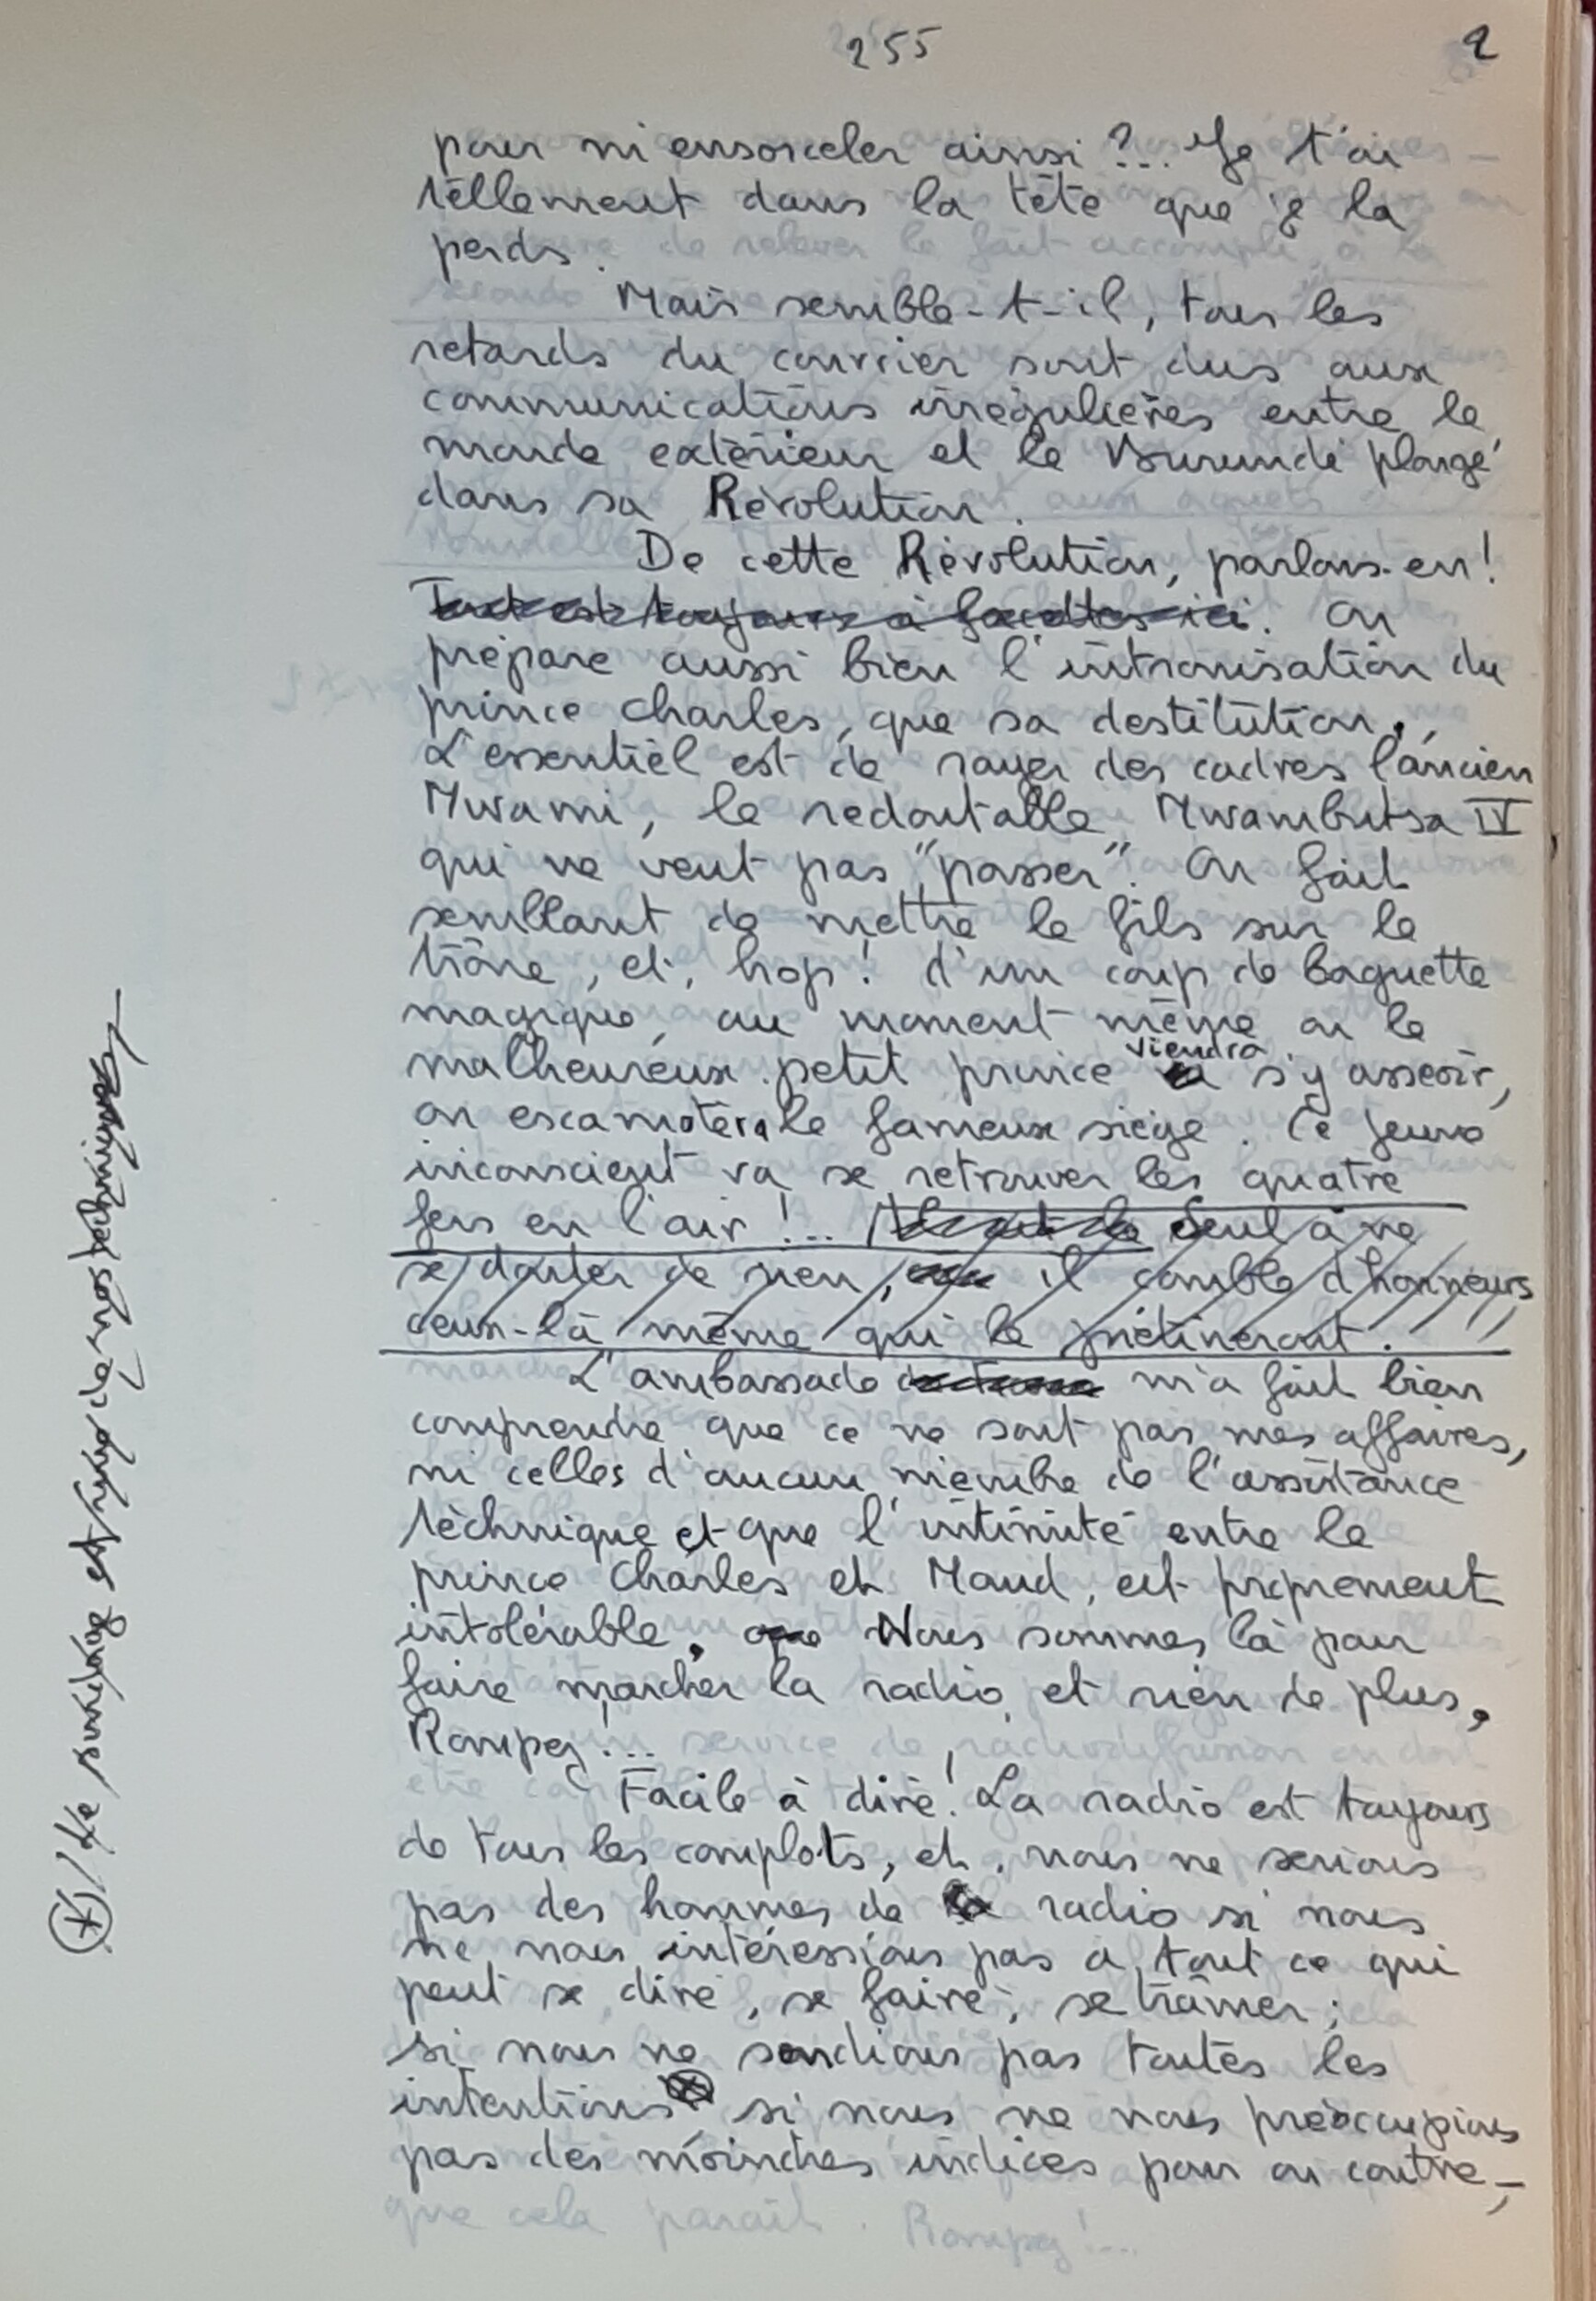 255
2
pour m'ensorceler ainsi ?... Je t'ai
tellement dans la tête que je la
perds.
Mais semble-t-il, tous les
retards du courrier sont dus aux
communications irrégulières entre le
monde extérieur et le Burundi plongé
dans sa Révolution.
De cette Révolution, parlons-en!
Tout est toujours à ici. On
prépare aussi bien l'intronisation du
prince Charles, que sa destitution.
L'essentiel est de rayer des cadres l'ancien
Mwami, le redoutable Mwambutsa IV
qui ne veut pas "passer". On fait
semblant de mettre le fils sur le
trône, et, hop! d'un coup de baguette
magique, au moment même où le
malheureux petit prince viendra s'y asseoir,
on escamotera le fameux siège. Ce jeune
inconscient va se retrouver les quatre
fers en l'air !... Seul à ne
se douter de rien, il comble d'honneurs
ceux-là même qui le piétineront.
L'ambassade m'a fait bien
comprendre que ce ne sont pas mes affaires,
ni celles d'aucun membre de l'assistance
technique et que l'intimité entre le
prince Charles et Maud, est proprement
intolérable. que Nous sommes là pour
faire marcher la radio et rien de plus.
Rompez!...
Facile à dire! La radio est toujours
de tous les complots, et, nous ne serions
pas des hommes de la radio si nous
ne nous intéressions pas à tout ce qui
peut se dire, se faire, se tramer;
si nous ne sondions pas toutes les
intentions si nous ne nous préoccupions
pas des moindres indices pour ou contre,
Le sondage est une de nos techniques,